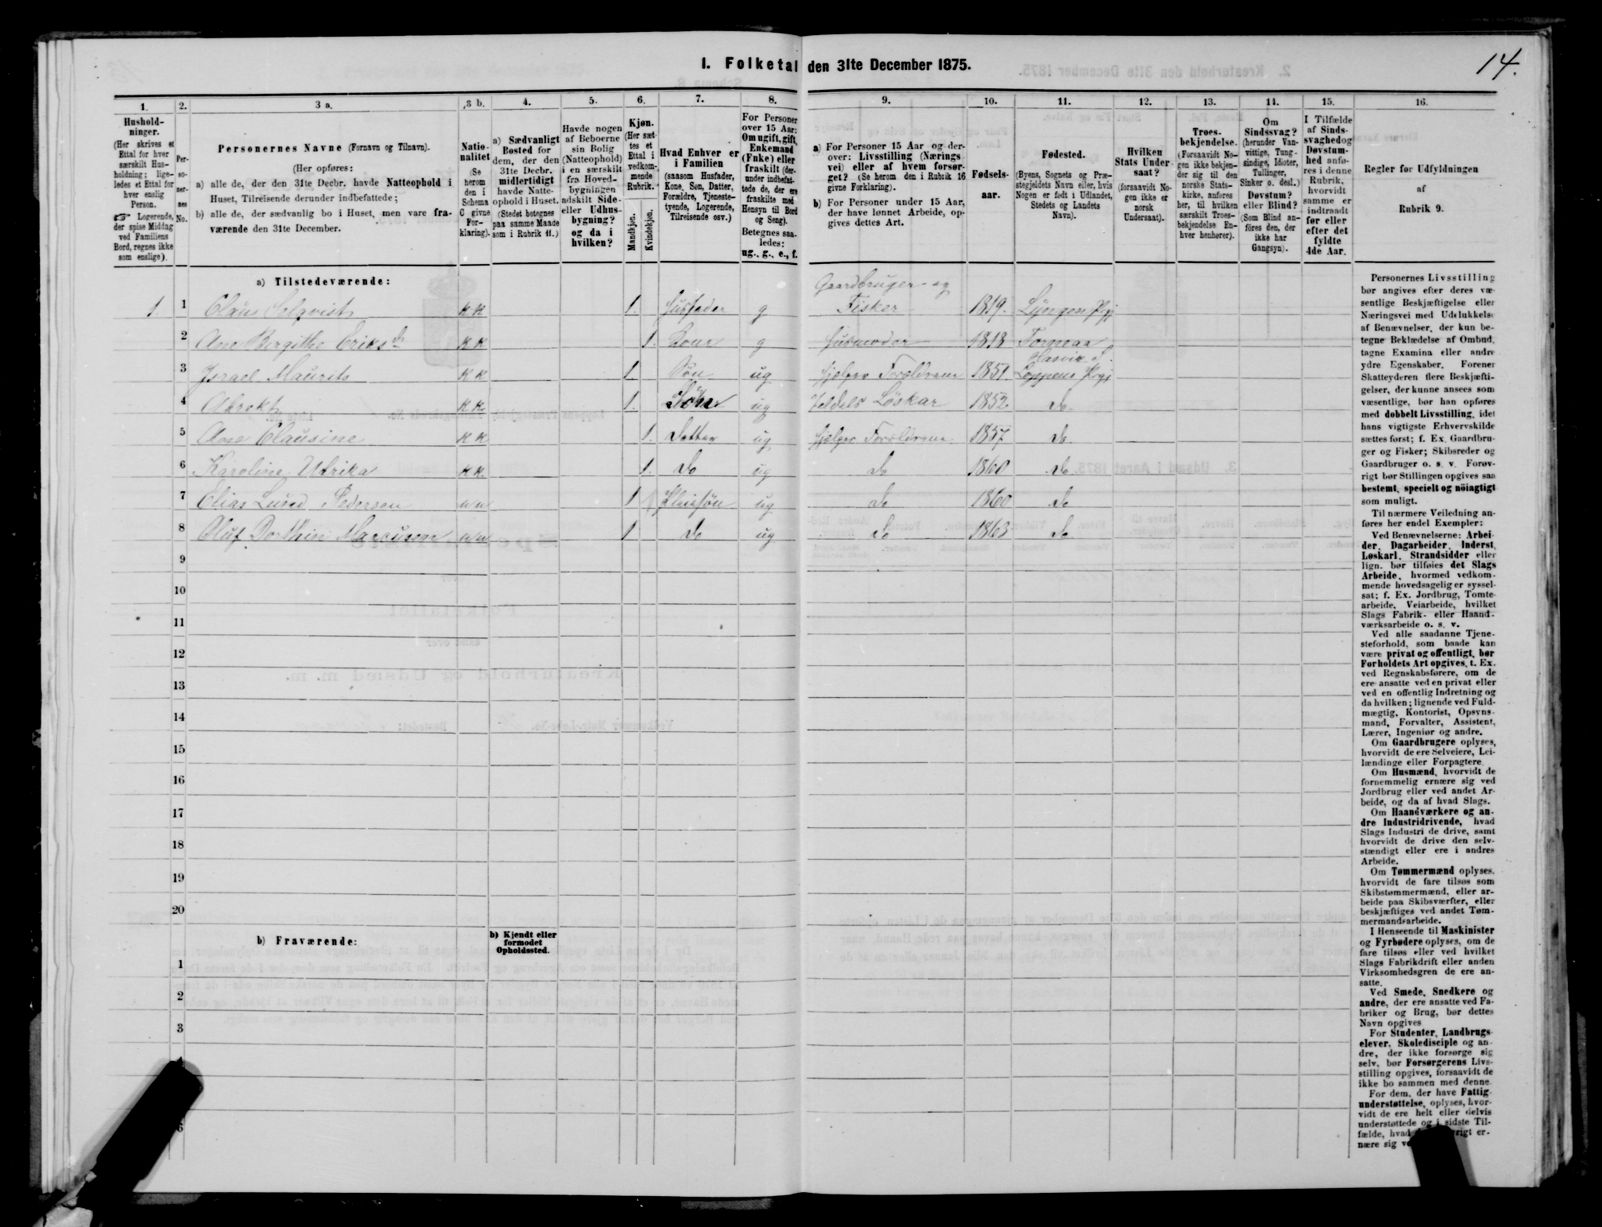 1. Folketal den 31te December 1875.
14.
1.
2.
3 a.
3 b.
4.
5.
6.
7.
8.
9.
10.
11.
12.
13.
14.
15.
16.
Hushold-
ninger.
(Her skrives et
Ettal for hver
særskilt Hus-
holdning; lige-
ledes et Ettal for
hver enslig
Person.
☞ Logerende,
der spise Middag
ved Familiens
Bord, regnes ikke
som enslige).
Per-
so-
ner-
nes
No.
Personernes Navne (Fornavn og Tilnavn).
(Her opføres:
a) alle de, der den 31te Decbr. havde Natteophold i
Huset, Tilreisende derunder indbefattede;
b) alle de, der sædvanlig bo i Huset, men vare fra-
værende den 31te December.
Natio-
nalitet
(Se
herom
den i
Schema
C givne
For-
klaring).
a) Sædvanligt
Bosted for
dem, der den
31te Decbr.
midlertidigt
havde Natte-
ophold i Huset.
(Stedet betegnes
paa samme Maade
som i Rubrik 11.)
Havde nogen
af Beboerne
sin Bolig
(Natteophold)
i en særskilt
fra Hoved-
bygningen
adskilt Side-
eller Udhus-
bygning?
og da i
hvilken?
Kjøn.
(Her sæt-
tes et
Ettal i
vedkom-
mende
Rubrik.
Mandkjøn.
Kvindekjøn.
Hvad Enhver er
i Familien
(saasom Husfader,
Kone, Søn, Datter,
Forældre, Tjeneste-
tyende, Logerende,
Tilreisende osv.)
For Personer
over 15 Aar:
Om ugift, gift,
Enkemand
(Enke) eller
fraskilt (der-
under indbefat-
tede de, der ere
fraskilte med
Hensyn til Bord
og Seng).
Betegnes saa-
ledes:
ug., g., e., f.
a) For Personer 15 Aar og der-
over: Livsstilling (Nærings-
vei) eller af hvem forsør-
get? (Se herom den i Rubrik 16
givne Forklaring).
b) For Personer under 15 Aar,
der have lønnet Arbeide, op-
gives dettes Art.
Fødsels-
aar.
Fødested.
(Byens, Sognets og Præ-
stegjeldets Navn eller, hvis
Nogen er født i Udlandet,
Stedets og Landets
Navn).
Hvilken
Stats Under-
saat?
(forsaavidt No-
gen ikke er
norsk
Undersaat).
Troes-
bekjendelse.
(Forsaavidt No-
gen ikke bekjen-
der sig til den
norske Stats-
kirke, anføres
her, til hvilken
særskilt Troes-
bekjendelse En-
hver henhører).
Om
Sindssvag?
(herunder Van-
vittige, Tung-
sindige, Idioter,
Tullinger,
Sinker o. desl.)
Døvstum?
eller Blind?
(Som Blind an-
føres den, der
ikke har
Gangsyn).
I Tilfælde
af Sinds-
svaghed og
Døvstum-
hed anfø-
res i denne
Rubrik,
hvorvidt
samme er
indtraadt
før eller
efter det
fyldte
4de Aar.
Regler for Udfyldningen
af
Rubrik 9.
a) Tilstedeværende:
1 1 Claus Selqvist KK 1. Husfader g Gaardbruger og Fisker 1819. Lyngen Pgj
2 Ane Birgithe Eriksd. KK 1. Kone g Husmoder 1818 Torneaa
3 Israel Maurits KK 1 Søn ug Hjelper Forældrene 1851 Hasvig S. Loppens Pgj
4 KK 1. Søn ug 1852 do
5 Ane Clausine KK 1. Datter ug Hjelper Forældrene 1857 do
6 Karoline Udrika KK 1. do ug do 1860 do
7 Elias Pedersen 1 Pleiesøn ug do 1860 do
8 Oluf 1 do ug do 1863 do
9
10
11
12
13
14
15
16
17
18
19
20
b) Fraværende:
b) Kjendt eller
formodet
Opholdssted.
1
2
3
6
Personernes Livsstilling
bør angives efter deres væ-
sentlige Beskjæftigelse eller
Næringsvei med Udelukkelse
af Benævnelser, der kun be-
tegne Beklædelse af Ombud,
tagne Examina eller andre
ydre Egenskaber. Forener
Skatteyderen flere Beskjæfti-
gelser, der kunne ansees som
væsentlige, bør han opføres
med dobbelt Livsstilling, idet
hans vigtigste Erhvervskilde
sættes først; f. Ex. Gaardbru-
ger og Fisker; Skibsreder og
Gaardbruger o. s. v. Forøv-
rigt bør Stillingen opgives saa
bestemt, specielt og nøiagtigt
som muligt.
Til nærmere Veiledning an-
føres her endel Exempler:
Ved Benævnelserne: Arbei-
der, Dagarbeider, Inderst,
Løskarl, Strandsidder eller
lign. bør tilføies det Slags
Arbeide, hvormed vedkom-
mende hovedsagelig er syssel-
sat; f. Ex. Jordbrug, Tomte-
arbeide, Veiarbeide, hvilket
Slags Fabrik- eller Haand-
værksarbeide o. s. v.
Ved alle saadanne Tjene-
steforhold, som baade kan
være privat og offentligt, bør
Forholdets Art opgives, t. Ex.
ved Regnskabsførere, om de
ere ansatte ved en privat eller
ved en offentlig Indretning og
da hvilken; lignende ved Fuld-
mægtig, Kontorist, Opsyns-
mand, Forvalter, Assistent,
Lærer, Ingeniør og andre.
Om Gaardbrugere oplyses,
hvorvidt de ere Selveiere, Lei-
lændinge eller Forpagtere.
Om Husmænd, hvorvidt de
fornemmelig ernære sig ved
Jordbrug eller ved andet Ar-
beide, og da af hvad Slags.
Om Haandværkere og an-
dre Industridrivende, hvad
Slags Industri de drive, samt
hvorvidt de drive den selv-
stændigt eller ere i andres
Arbeide.
Om Tømmermænd oplyses,
hvorvidt de fare tilsøs som
Skibstømmermænd, eller ar-
beide paa Skibsværfter, eller
beskjæftiges ved andet Tøm-
mermandsarbeide.
I Henseende til Maskinister
og Fyrbødere oplyses, om de
fare tilsøs eller ved hvilket
Slags Fabrikdrift eller anden
Virksomhedsgren de ere an-
satte.
Ved Smede, Snedkere og
andre, der ere ansatte ved Fa-
briker og Brug, bør dettes
Navn opgives
For Studenter, Landbrugs-
elever, Skoledisciple og an-
dre, der ikke forsørge sig
selv, bør Forsørgerens Livs-
stilling opgives, forsaavidt de
ikke bo sammen med denne.
For dem, der have Fattig-
understøttelse, oplyses, hvor-
vidt de ere helt eller delvis
understøttede og i sidste Til-
fælde, hvad
nære sig